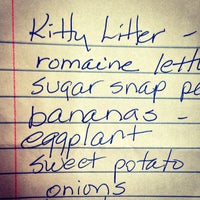 Kitty Litter -
romaine lett
sugar snap pe
bananas -
eggplant
sweet potato
onions